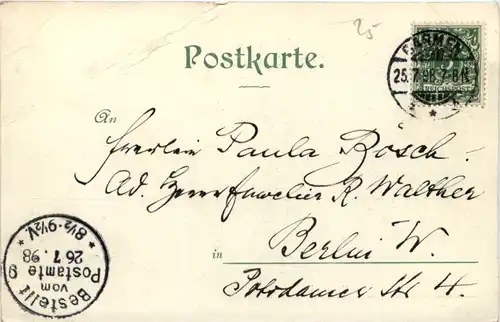 25
Postkarte.
BARMEN
25.7.98.7-8N
REICHSPOST
An
Fräulein Paula Bosch.
Ad. Herrn R. Walther
in Berlin W.
Potsdamer Str 4.
Bestellt
vom
Postamte 9
26.7.98
8½-9½V.